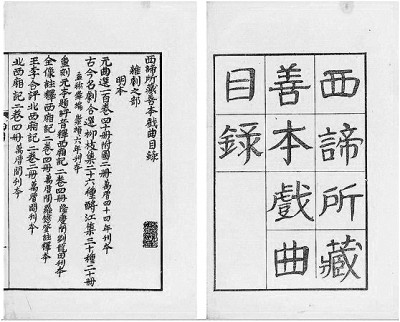 西諦所藏
善本戲曲
目錄
西諦所藏善本戲曲目錄
雜劇之部
明本
元曲選一百卷四十册附圖二册萬曆四十四年刊本
古今名劇合選柳枝集二十六種酹江集三十種二十册
孟称舜編 崇禎六年刊本
重刻元本題評音釋西廂記二卷四册 間劉龍田刊本
全像註釋西廂記二卷四册萬曆間羅懋登註釋本
王李合評北西廂記二卷二册萬曆間刊本
北西廂記二卷四册萬曆間刊本